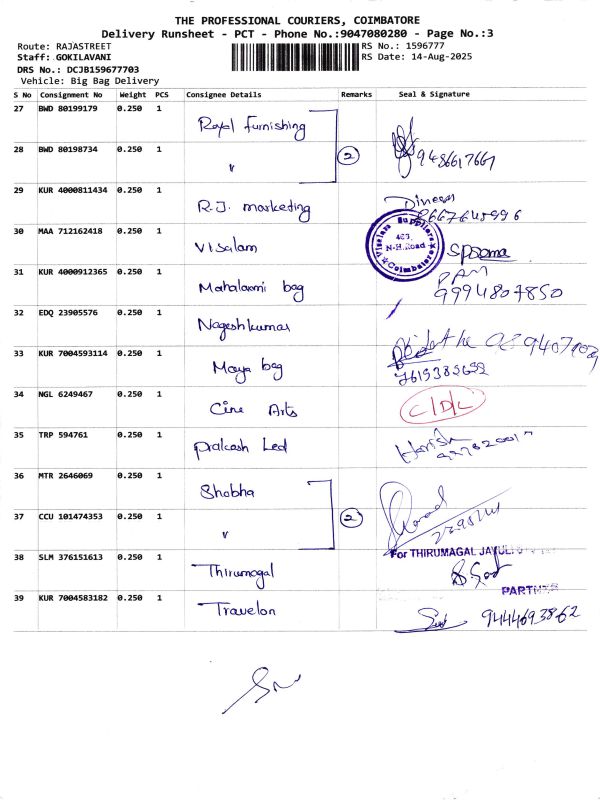 THE PROFESSIONAL COURIERS, COIMBATORE
Delivery Runsheet - PCT - Phone No.:9047080280 - Page No.:3
Route: RAJASTREET
RS No.: 1596777
Staff: GOKILAVANI
RS Date: 14-Aug-2025
DRS No.: DCJB159677703
Vehicle: Big Bag Delivery
S No Consignment No Weight PCS Consignee Details Remarks Seal & Signature
27 BWD 80199179 0.250 1 Royal furnishing
28 BWD 80198734 0.250 1 " 2 9486617667
29 KUR 4000811434 0.250 1 R.J. marketing Dinesh 8667648996
30 MAA 712162418 0.250 1 Visalam Visalam Suppliers 463, N-H.Road Coimbatore
31 KUR 4000912365 0.250 1 Mahalaxmi bag 9994807850
32 EDQ 23905576 0.250 1 Nageshkumar
33 KUR 7004593114 0.250 1 Maya bag 7619385692
34 NGL 6249467 0.250 1 Cine Arts C/D/L
35 TRP 594761 0.250 1 prakash Led Harish
36 MTR 2646069 0.250 1 Shobha
37 CCU 101474353 0.250 1 " 2
38 SLM 376151613 0.250 1 Thirumagal For THIRUMAGAL PARTNER
39 KUR 7004583182 0.250 1 Travelon 9444693862